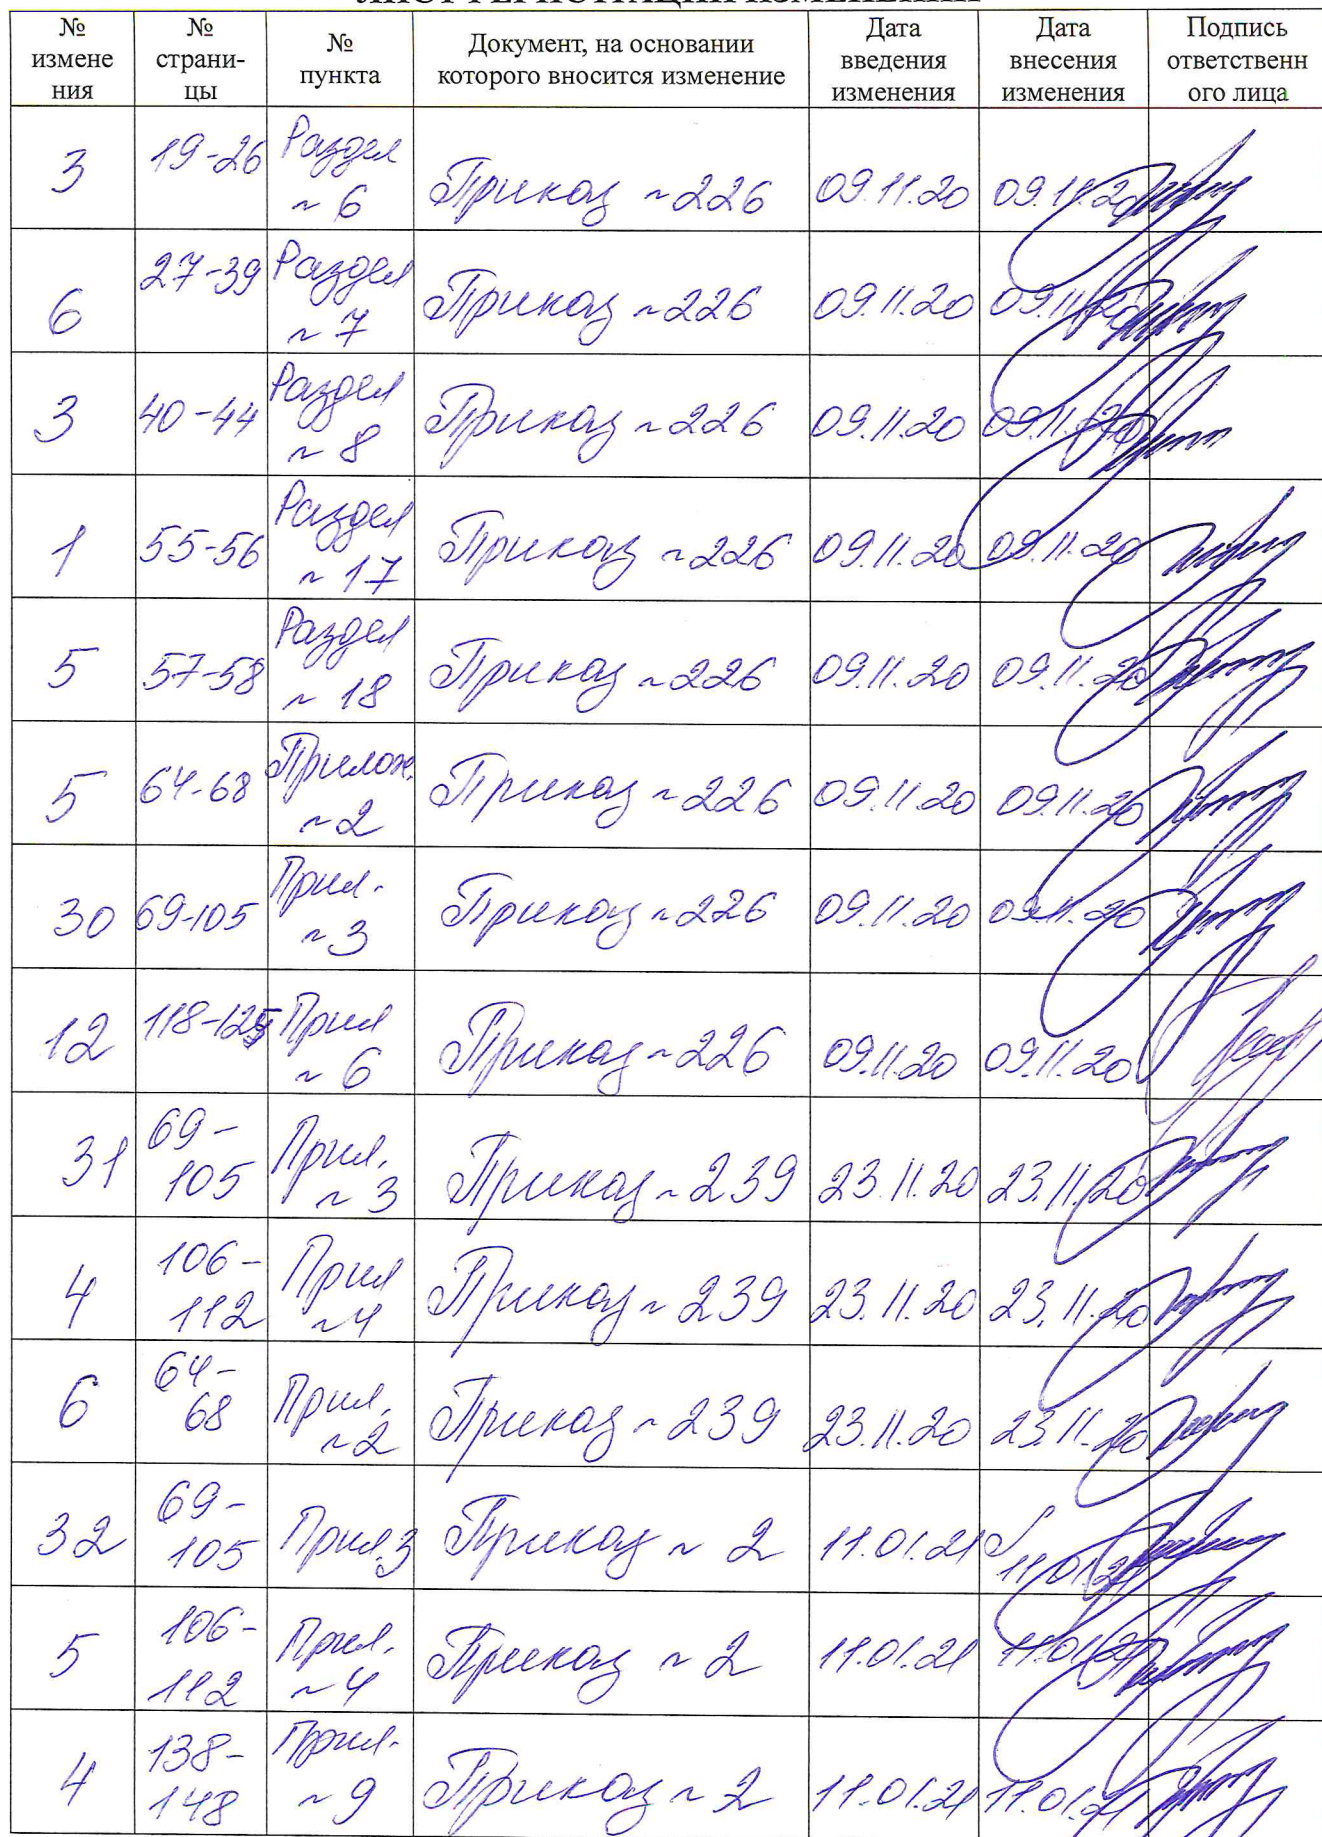 ЛИСТ РЕГИСТРАЦИИ ИЗМЕНЕНИЙ
№ измене ния | № страни- цы | № пункта | Документ, на основании которого вносится изменение | Дата введения изменения | Дата внесения изменения | Подпись ответственн ого лица
3 | 19-26 | Раздел ~ 6 | Приказ ~ 226 | 09.11.20 | 09.11.20
6 | 27-39 | Раздел ~ 7 | Приказ ~ 226 | 09.11.20 | 09.11.20
3 | 40-44 | Раздел ~ 8 | Приказ ~ 226 | 09.11.20 | 09.11.20
1 | 55-56 | Раздел ~ 17 | Приказ ~ 226 | 09.11.20 | 09.11.20
5 | 57-58 | Раздел ~ 18 | Приказ ~ 226 | 09.11.20 | 09.11.20
5 | 64-68 | Прилож. ~ 2 | Приказ ~ 226 | 09.11.20 | 09.11.20
30 | 69-105 | Прил. ~ 3 | Приказ ~ 226 | 09.11.20 | 09.11.20
12 | Прил ~ 6 | Приказ ~ 226 | 09.11.20 | 09.11.20
31 | 69-105 | Прил. ~ 3 | Приказ ~ 239 | 23.11.20 | 23.11.20
4 | 106-112 | Прил ~ 4 | Приказ ~ 239 | 23.11.20 | 23.11.20
6 | 64-68 | Прил. ~ 2 | Приказ ~ 239 | 23.11.20 | 23.11.20
32 | 69-105 | Прил. 3 | Приказ ~ 2 | 11.01.21 | 11.01.21
5 | 106-112 | Прил. ~ 4 | Приказ ~ 2 | 11.01.21 | 11.01.21
4 | 138-148 | Прил. ~ 9 | Приказ ~ 2 | 11.01.21 | 11.01.21